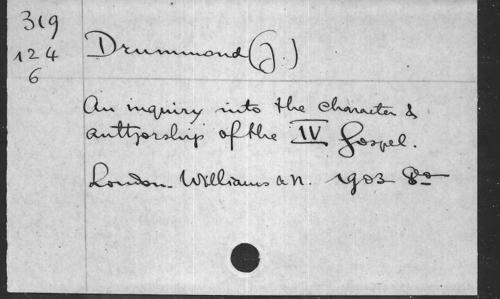 319
124
6
Drummond (J.)
An inquiry into the character &
authorship of the IV Gospel.
London. Williams & N. 1903 8o